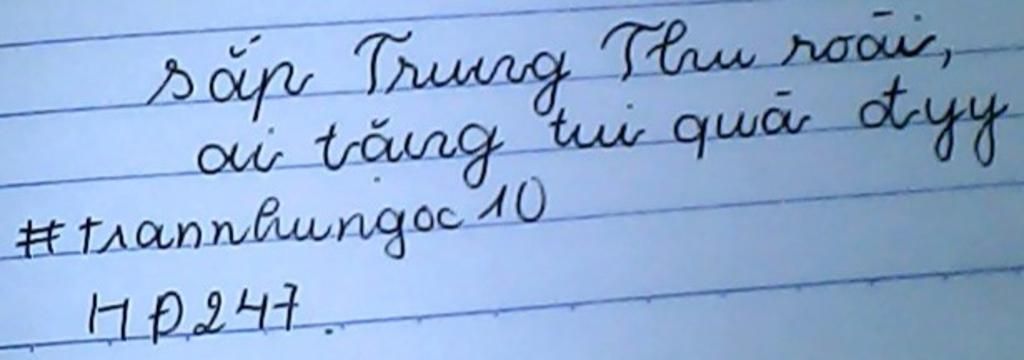 sắp Trung Thu roài,
ai tặng tui quà đyy
#trannhungoc10
HĐ247.